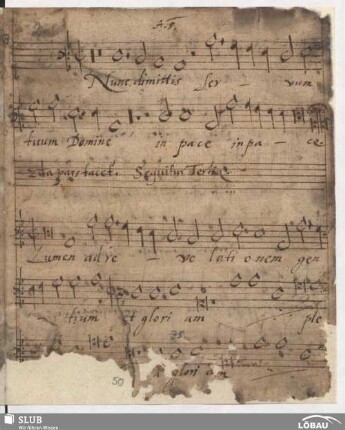 Nunc dimittis ser - vum
tuum Domine in pace in pa - ce
2da pars tacet. Sequitur Tertia
Lumen ad re - ve lati onem gen
tium et glori am ple
75
glori am
50
SLUB
Wir führen Wissen.
LÖBAU